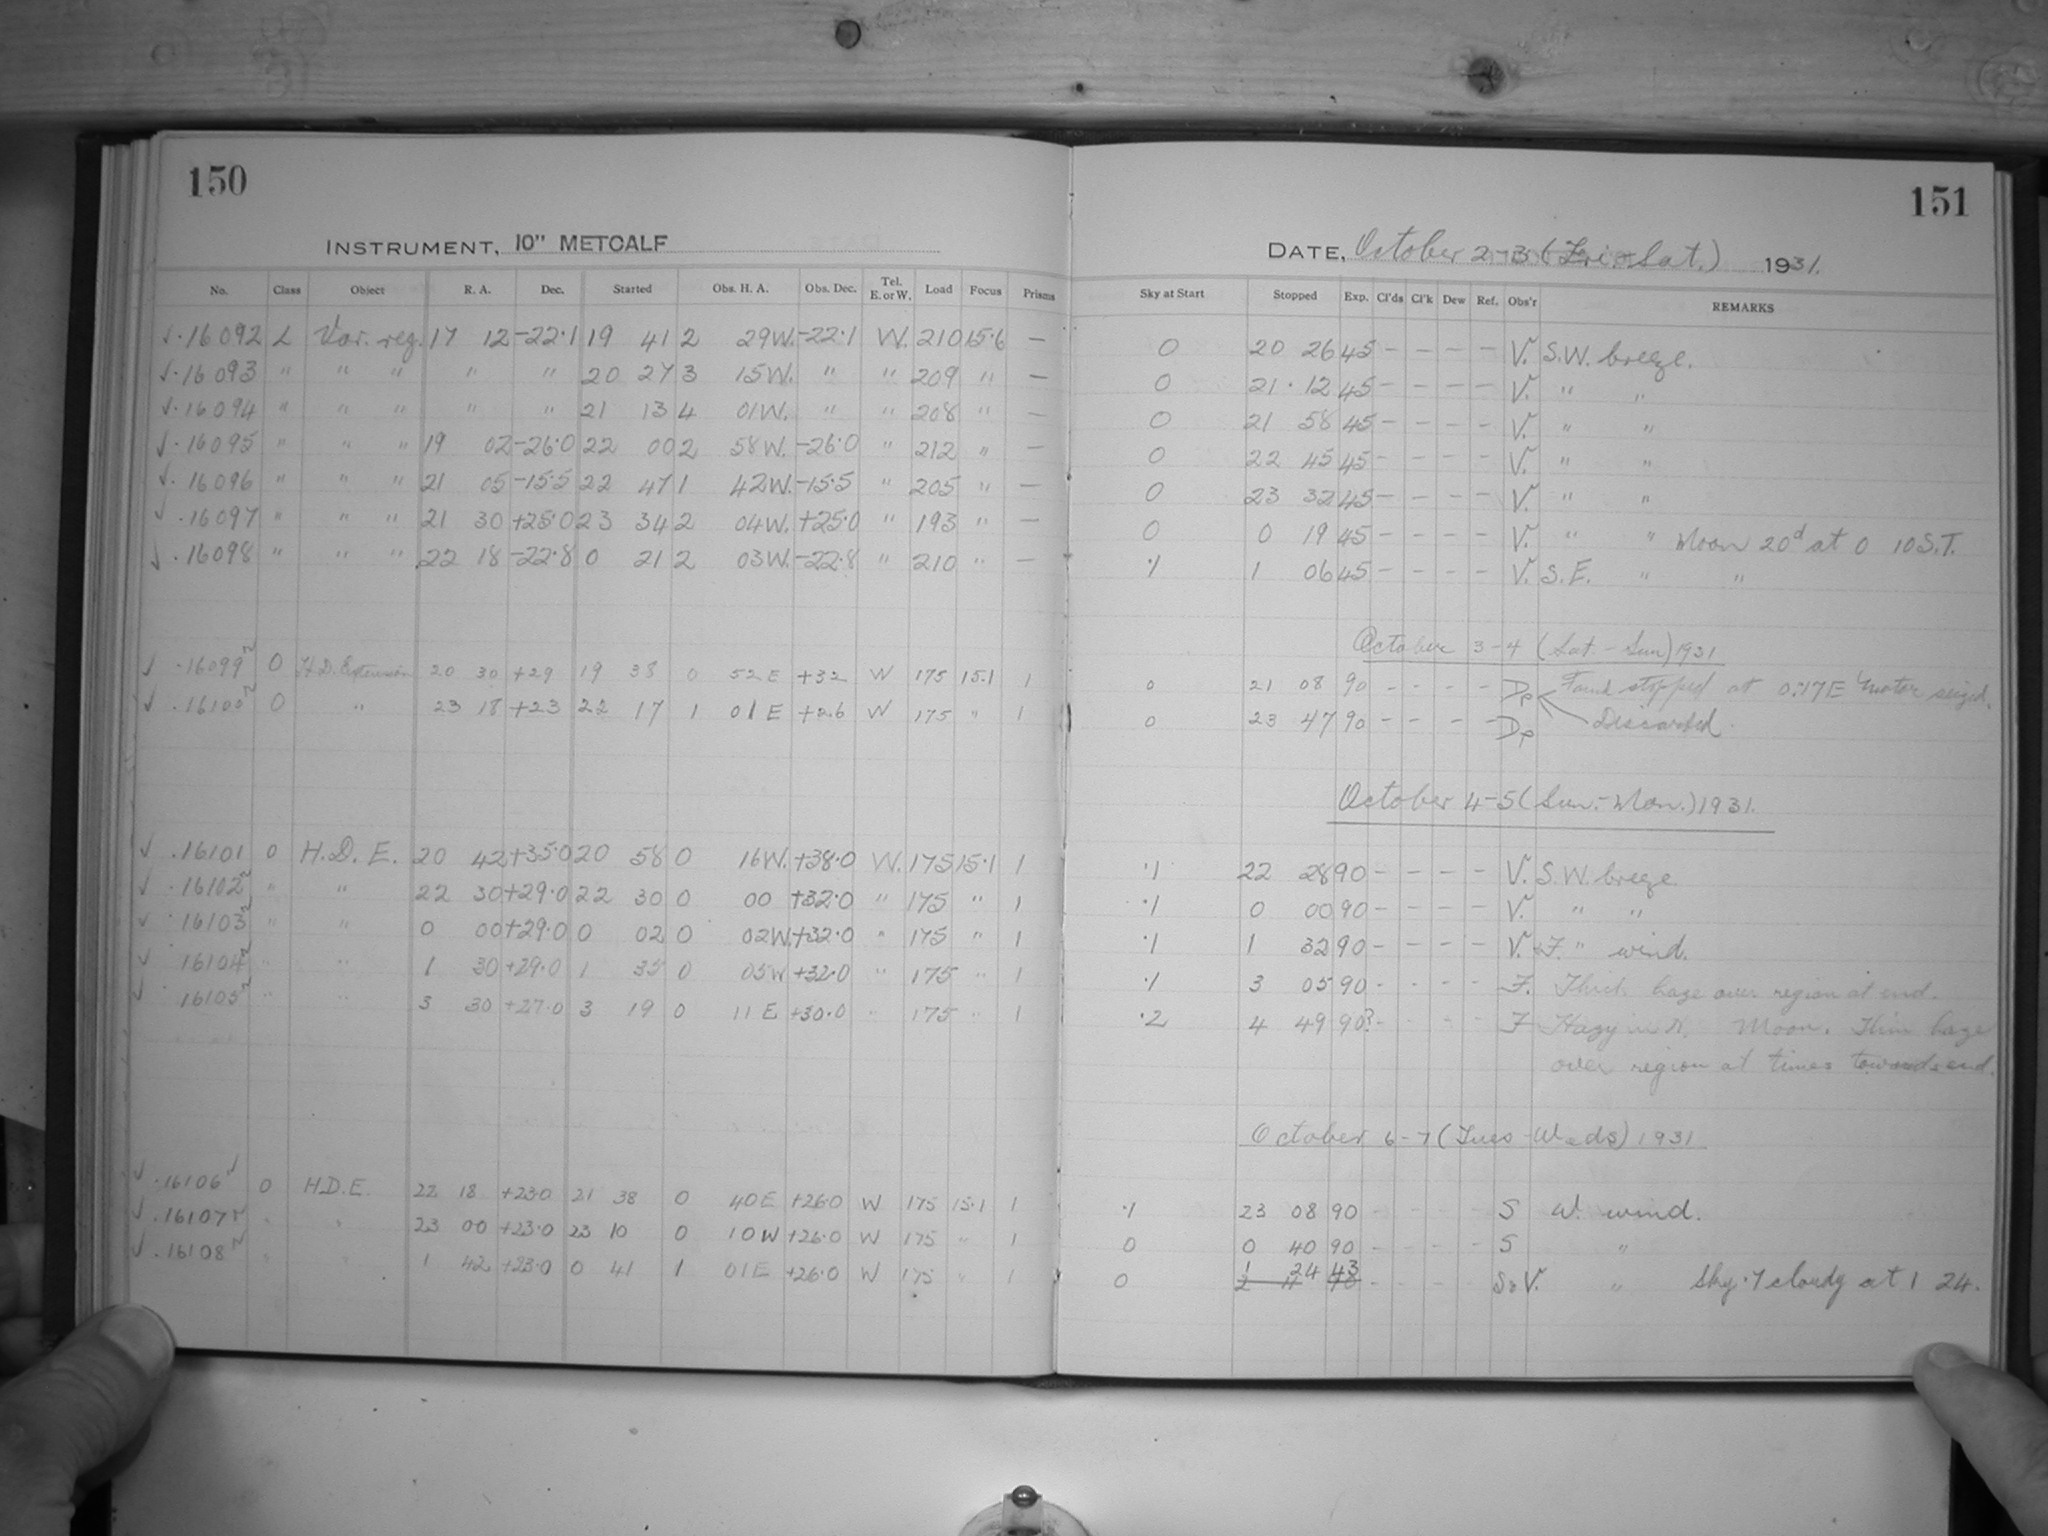 150
INSTRUMENT, 10" METCALF
No. Class Object R. A. Dec. Started Obs. H. A. Obs. Dec. Tel. E. or W. Load Focus Prisms
√ . 16092 L Var. reg. 17 12 -22.1 19 41 2 29W. -22.1 W. 210 15.6 —
√ . 16093 " " " " " 20 27 3 15W. " " 209 " —
√ . 16094 " " " " " 21 13 4 01W. " " 208 " —
√ . 16095 " " " 19 02 -26.0 22 00 2 58W. -26.0 " 212 " —
√ . 16096 " " " 21 05 -15.5 22 47 1 42W. -15.5 " 205 " —
√ . 16097 " " " 21 30 +25.0 23 34 2 04W. +25.0 " 193 " —
√ . 16098 " " " 22 18 -22.8 0 21 2 03W. -22.8 " 210 " —
√ . 16099 O H.D. Extension 20 30 +29 19 38 0 52 E +32 W 175 15.1 1
√ . 16100 O " 23 18 +23 22 17 1 01 E +26 W 175 " 1
√ . 16101 O H. D. E. 20 42 +35.0 20 58 0 16W. +38.0 W. 175 15.1 1
√ . 16102 " " 22 30 +29.0 22 30 0 00 +32.0 " 175 " 1
√ . 16103 " " 0 00 +29.0 0 02 0 02W. +32.0 " 175 " 1
√ 16104 " " 1 30 +29.0 1 35 0 05W +32.0 " 175 " 1
√ 16105 " " 3 30 +27.0 3 19 0 11 E +30.0 " 175 " 1
√ . 16106 O H.D.E. 22 18 +23.0 21 38 0 40 E +26.0 W 175 15.1 1
√ . 16107 " " 23 00 +23.0 23 10 0 10 W +26.0 W 175 " 1
√ . 16108 " " 1 42 +23.0 0 41 1 01 E +26.0 W 175 " 1
151
DATE, October 2-3 (Fri-Sat.) 1931.
Sky at Start Stopped Exp. Cl'ds Cl'k Dew Ref. Obs'r REMARKS
0 20 26 45 - - - - V. S.W. breeze.
0 21 . 12 45 - - - - V. " "
0 21 58 45 - - - - V. " "
0 22 45 45 - - - - V. " "
0 23 32 45 - - - - V. " "
0 0 19 45 - - - - V. " " Moon 20d at 0 10 S.T.
.1 1 06 45 - - - - V. S. E. " "
October 3-4 (Sat - Sun) 1931
0 21 08 90 - - - - Dp Found stopped at 0:17E motor seized.
0 23 47 90 - - - - Dp Discarded.
October 4-5 (Sun.-Mon.) 1931.
.1 22 28 90 - - - - V. S.W. breeze.
.1 0 00 90 - - - - V. " "
.1 1 32 90 - - - - V. +F. " wind.
.1 3 05 90 - - - - F. Thick haze over region at end.
.2 4 49 90? - - - - F Hazy in N. Moon. Thin haze
over region at times towards end.
October 6-7 (Tues - Weds) 1931
.1 23 08 90 - - - - S W. wind.
0 0 40 90 - - - - S "
1 24 43
0 2 11 90 - - - - S & V. " Sky .7 cloudy at 1 24.